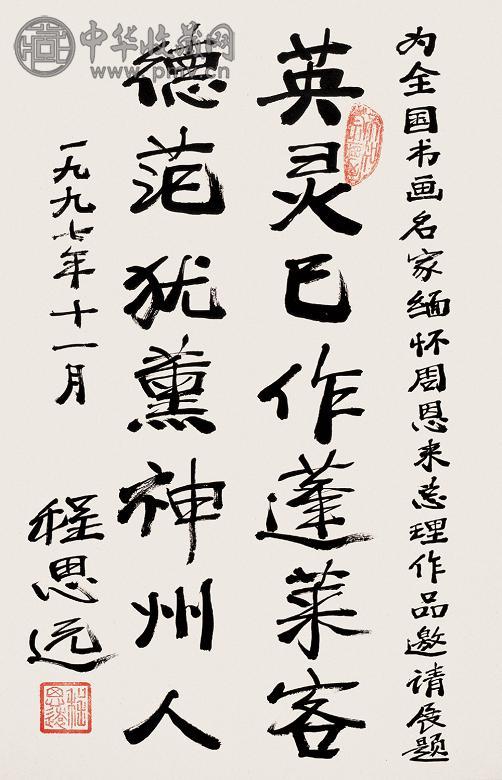 为全国书画名家缅怀周恩来总理作品邀请展题
英灵已作蓬莱客
德范犹薰神州人
一九九七年十一月
程思远
程思远
中华收藏网
www.pmcv.cn